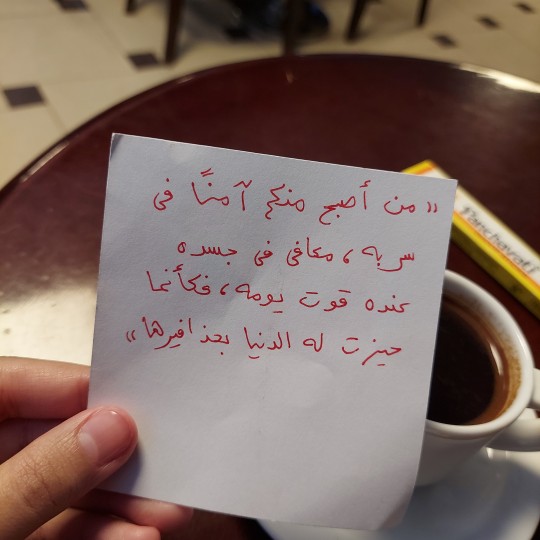 «من أصبح منكم آمنًا في
سربه، معافى في جسده
عنده قوت يومه، فكأنما
حيزت له الدنيا بحذافيرها»
Panchavati